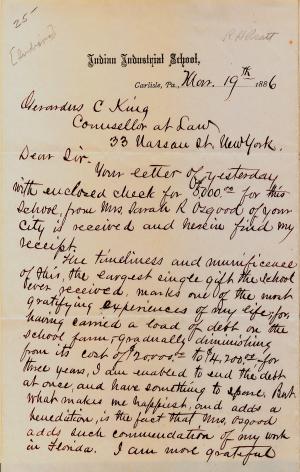 25-
[Indians]
R H Pratt
Indian Industrial School,
Carlisle, Pa., Mar. 19th 1886
Gerardus C King
Counsellor at Law
33 Nassau St. New York.
Dear Sir.
Your letter of yesterday
with enclosed check for 5000.00 for this
School, from Mrs. Sarah R Osgood of your
City is received and herein find my
receipt.
The timeliness and munificence
of this, the largest single gift the school
ever received, marks one of the most
gratifying experiences of my life, for
having carried a load of debt on the
school farm, gradually diminishing
from its cost of 20000.00 to 4.200.00 for
three years, I am enabled to end the debt
at once, and have something to spare. But
what makes me happiest, and adds a
benediction, is the fact that Mrs. Osgood
adds such commendation of my work
in Florida. I am more grateful